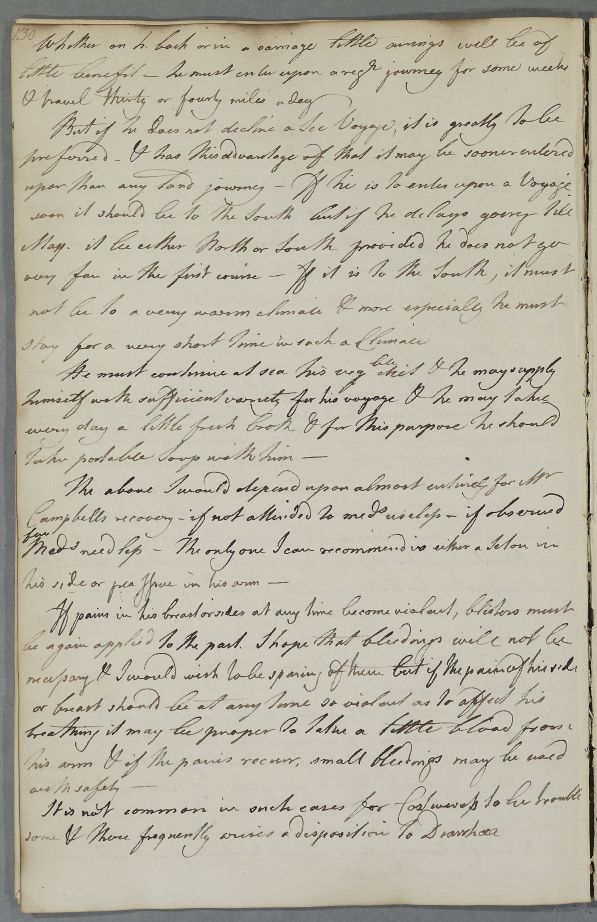 130
Whether on h. back or in a carriage little airings will be of
little benefit – he must enter upon a regr. journey for some weeks
& travel thirty or fourty miles a day
But if he does not decline a Sea Voyage, it is greatly to be
preferred – & has this advantage of that it may be sooner entered
upon than any land journey – If he is to enter upon a Voyage
soon it should be to the South but if he delays going till
May. it be either North or South provided he does not go
very far in the first course – If it is to the South, it must
not be to a very warm climate & more especially he must
stay for a very short time in such a Climate
He must continue at sea his vegble diet & he may supply
himself with sufficient variety for his voyage & he may take
every day a little fresh broth & for this purpose he should
take portable Soup with him –
The above I would depend upon almost entirely for Mr
Campbells recovery – if not attended to meds useless – if observed
few
Meds needless – The only one I can recommend is either a Seton in
his side or pea Issue in his arm –
If pains in his breast or sides at any time become violent, blisters must
be again applied to the part. I hope that bleedings will not be
necessary & I would wish to be sparing of them but if the pain of his side
or breast should be at any time so violent as to affect his
breathing it may be proper to take a little blood from
his arm & if the pains recur, small bleedings may be used
with safety –
It is not common in such cases for Costiveness to be trouble
some & there frequently arises a disposition to Diarrhœa